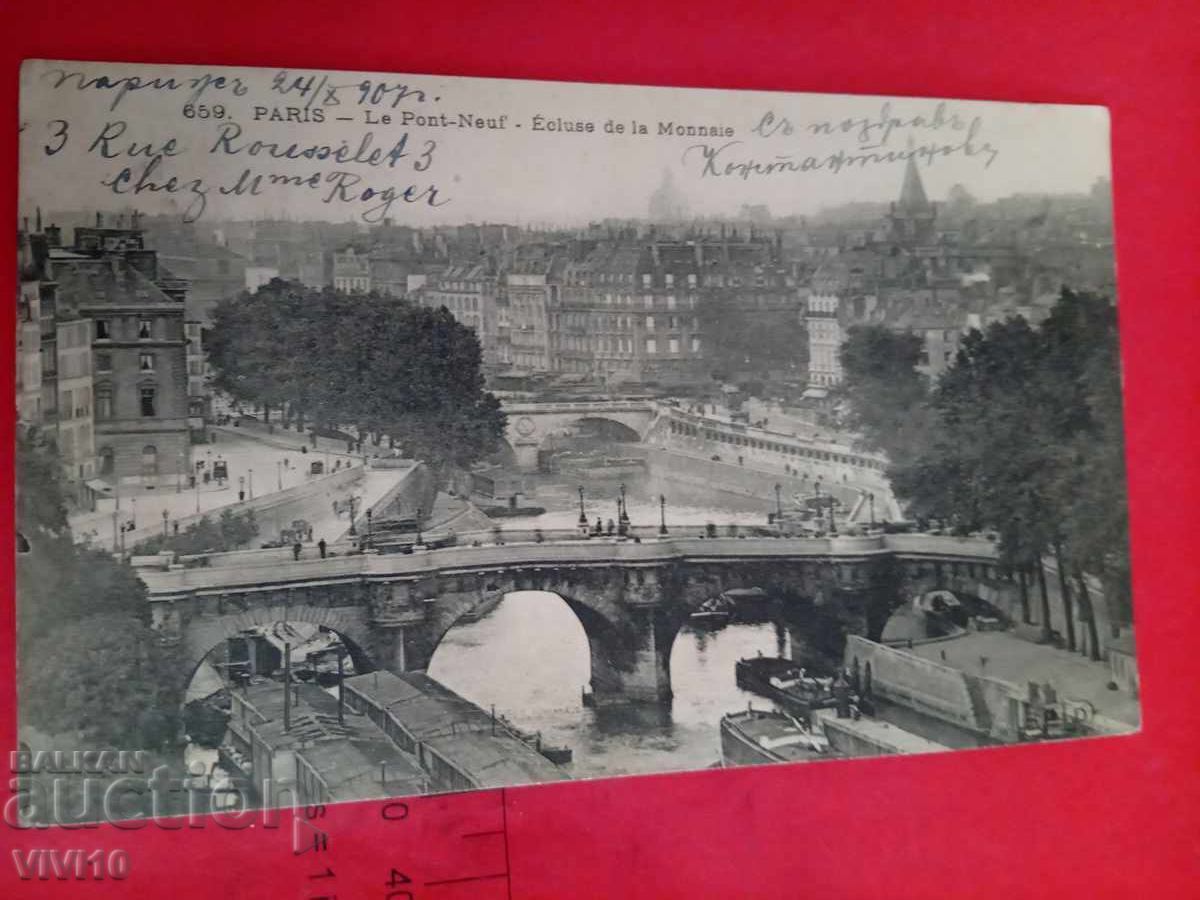 Парижъ 24/X 907 г.
659. PARIS — Le Pont-Neuf - Écluse de la Monnaie
3 Rue Rousselet 3
Chez Mme Roger
Съ поздравъ
Константиновъ
BALKAN
auction
VIVI10